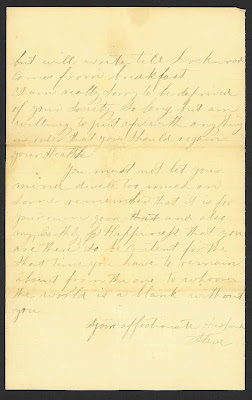 but will write till Lockwood
comes from breakfast
I am really Sorry to be deprived
of your Society so long but am
willing to put up with anything
in order that you should regain
your Health
You must not let your
mind dwell too much on
home remember that it is for
your own good that and also
my Earthly Happiness that you
are there do not fret for the
short time you have to remain
absent from the one to whom
the world is a blank without
you
Your affectionate Husband
Steve